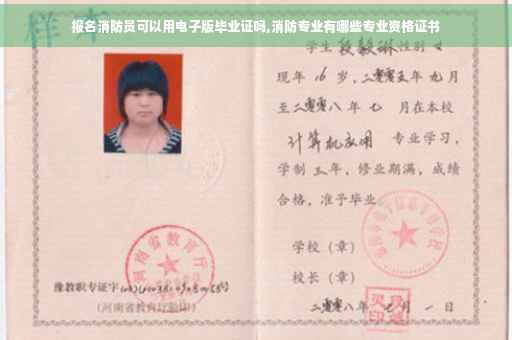 报名消防员可以用电子版毕业证吗,消防专业有哪些专业资格证书
样本
学生段毅琳性别女
现年16岁，二零零五年九月
至二零零八年七月在本校
计算机应用 专业学习，
学制三年，修业期满，成绩
合格，准予毕业
学校（章）
校长（章）
二零零八年七月一日
河南省教育厅
豫教职专证字
(河南省教育厅验印)